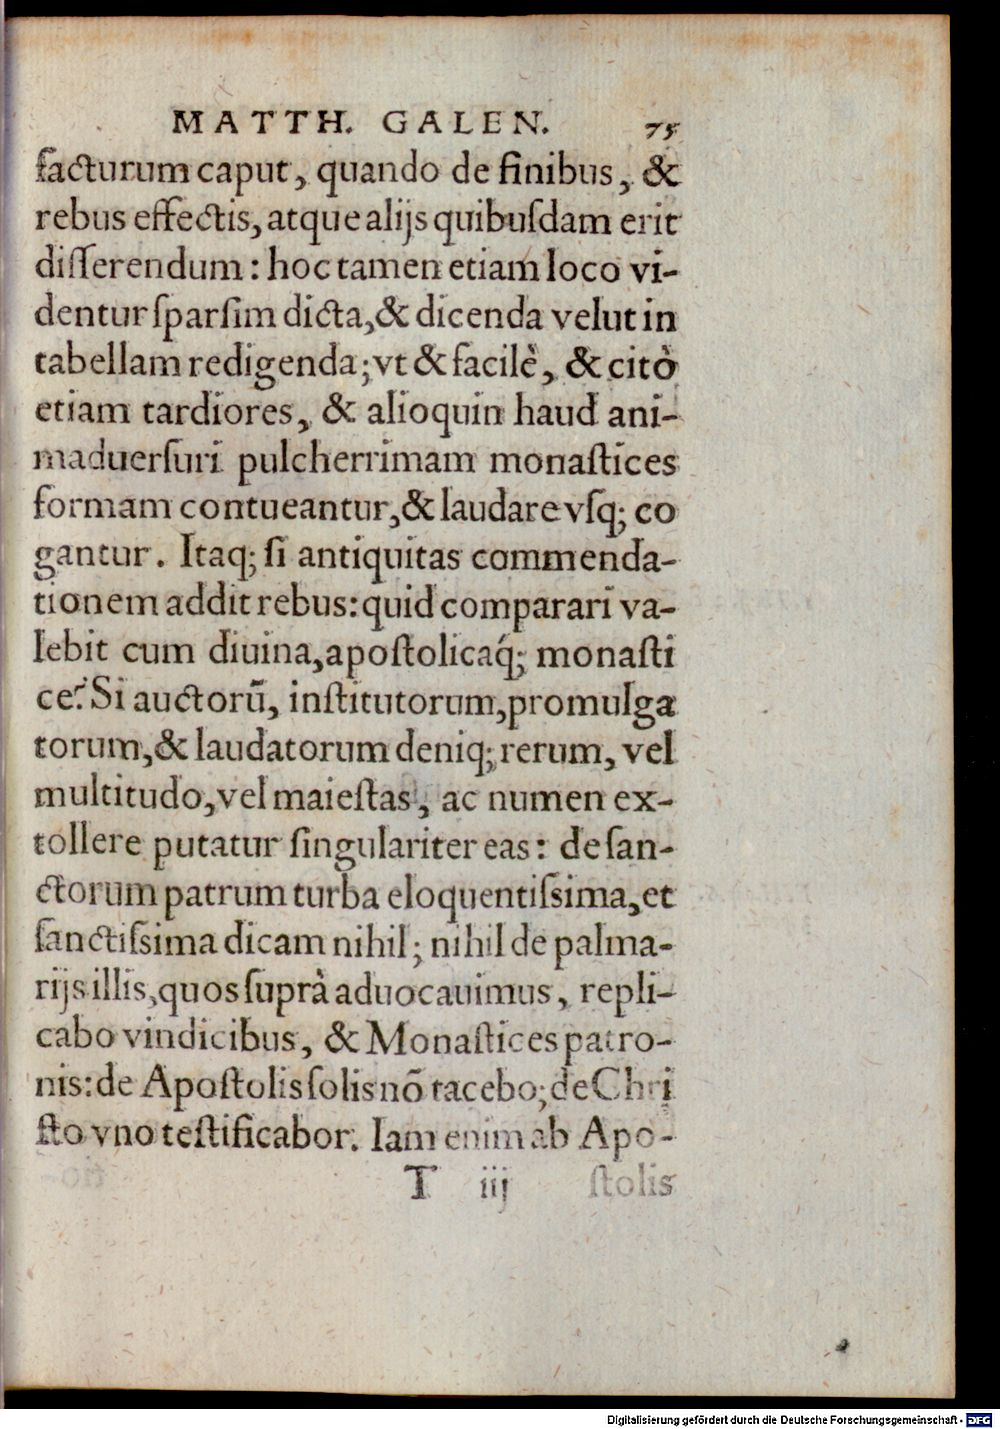 MATTH. GALEN. 75
facturum caput, quando de finibus, &
rebus effectis, atque alijs quibuſdam erit
diſſerendum: hoc tamen etiam loco vi-
dentur ſparſim dicta, & dicenda velut in
tabellam redigenda; vt & facilè, & citò
etiam tardiores, & alioquin haud ani-
maduerſuri pulcherrimam monaſtices
formam contueantur, & laudare vſq; co
gantur. Itaq; ſi antiquitas commenda-
tionem addit rebus: quid comparari va-
lebit cum diuina, apoſtolicaq́; monaſti
ce? Si auctorū, inſtitutorum, promulga
torum, & laudatorum deniq; rerum, vel
multitudo, vel maieſtas, ac numen ex-
tollere putatur ſingulariter eas: de ſan-
ctorum patrum turba eloquentiſsima, et
ſanctiſsima dicam nihil; nihil de palma-
rijs illis, quos ſuprà aduocauimus, repli-
cabo vindicibus, & Monaſtices patro-
nis: de Apoſtolis ſolis nō tacebo; de Chri
ſto vno teſtificabor. Iam enim ab Apo-
T iij ſtolis
Digitalisierung gefördert durch die Deutsche Forschungsgemeinschaft - DFG